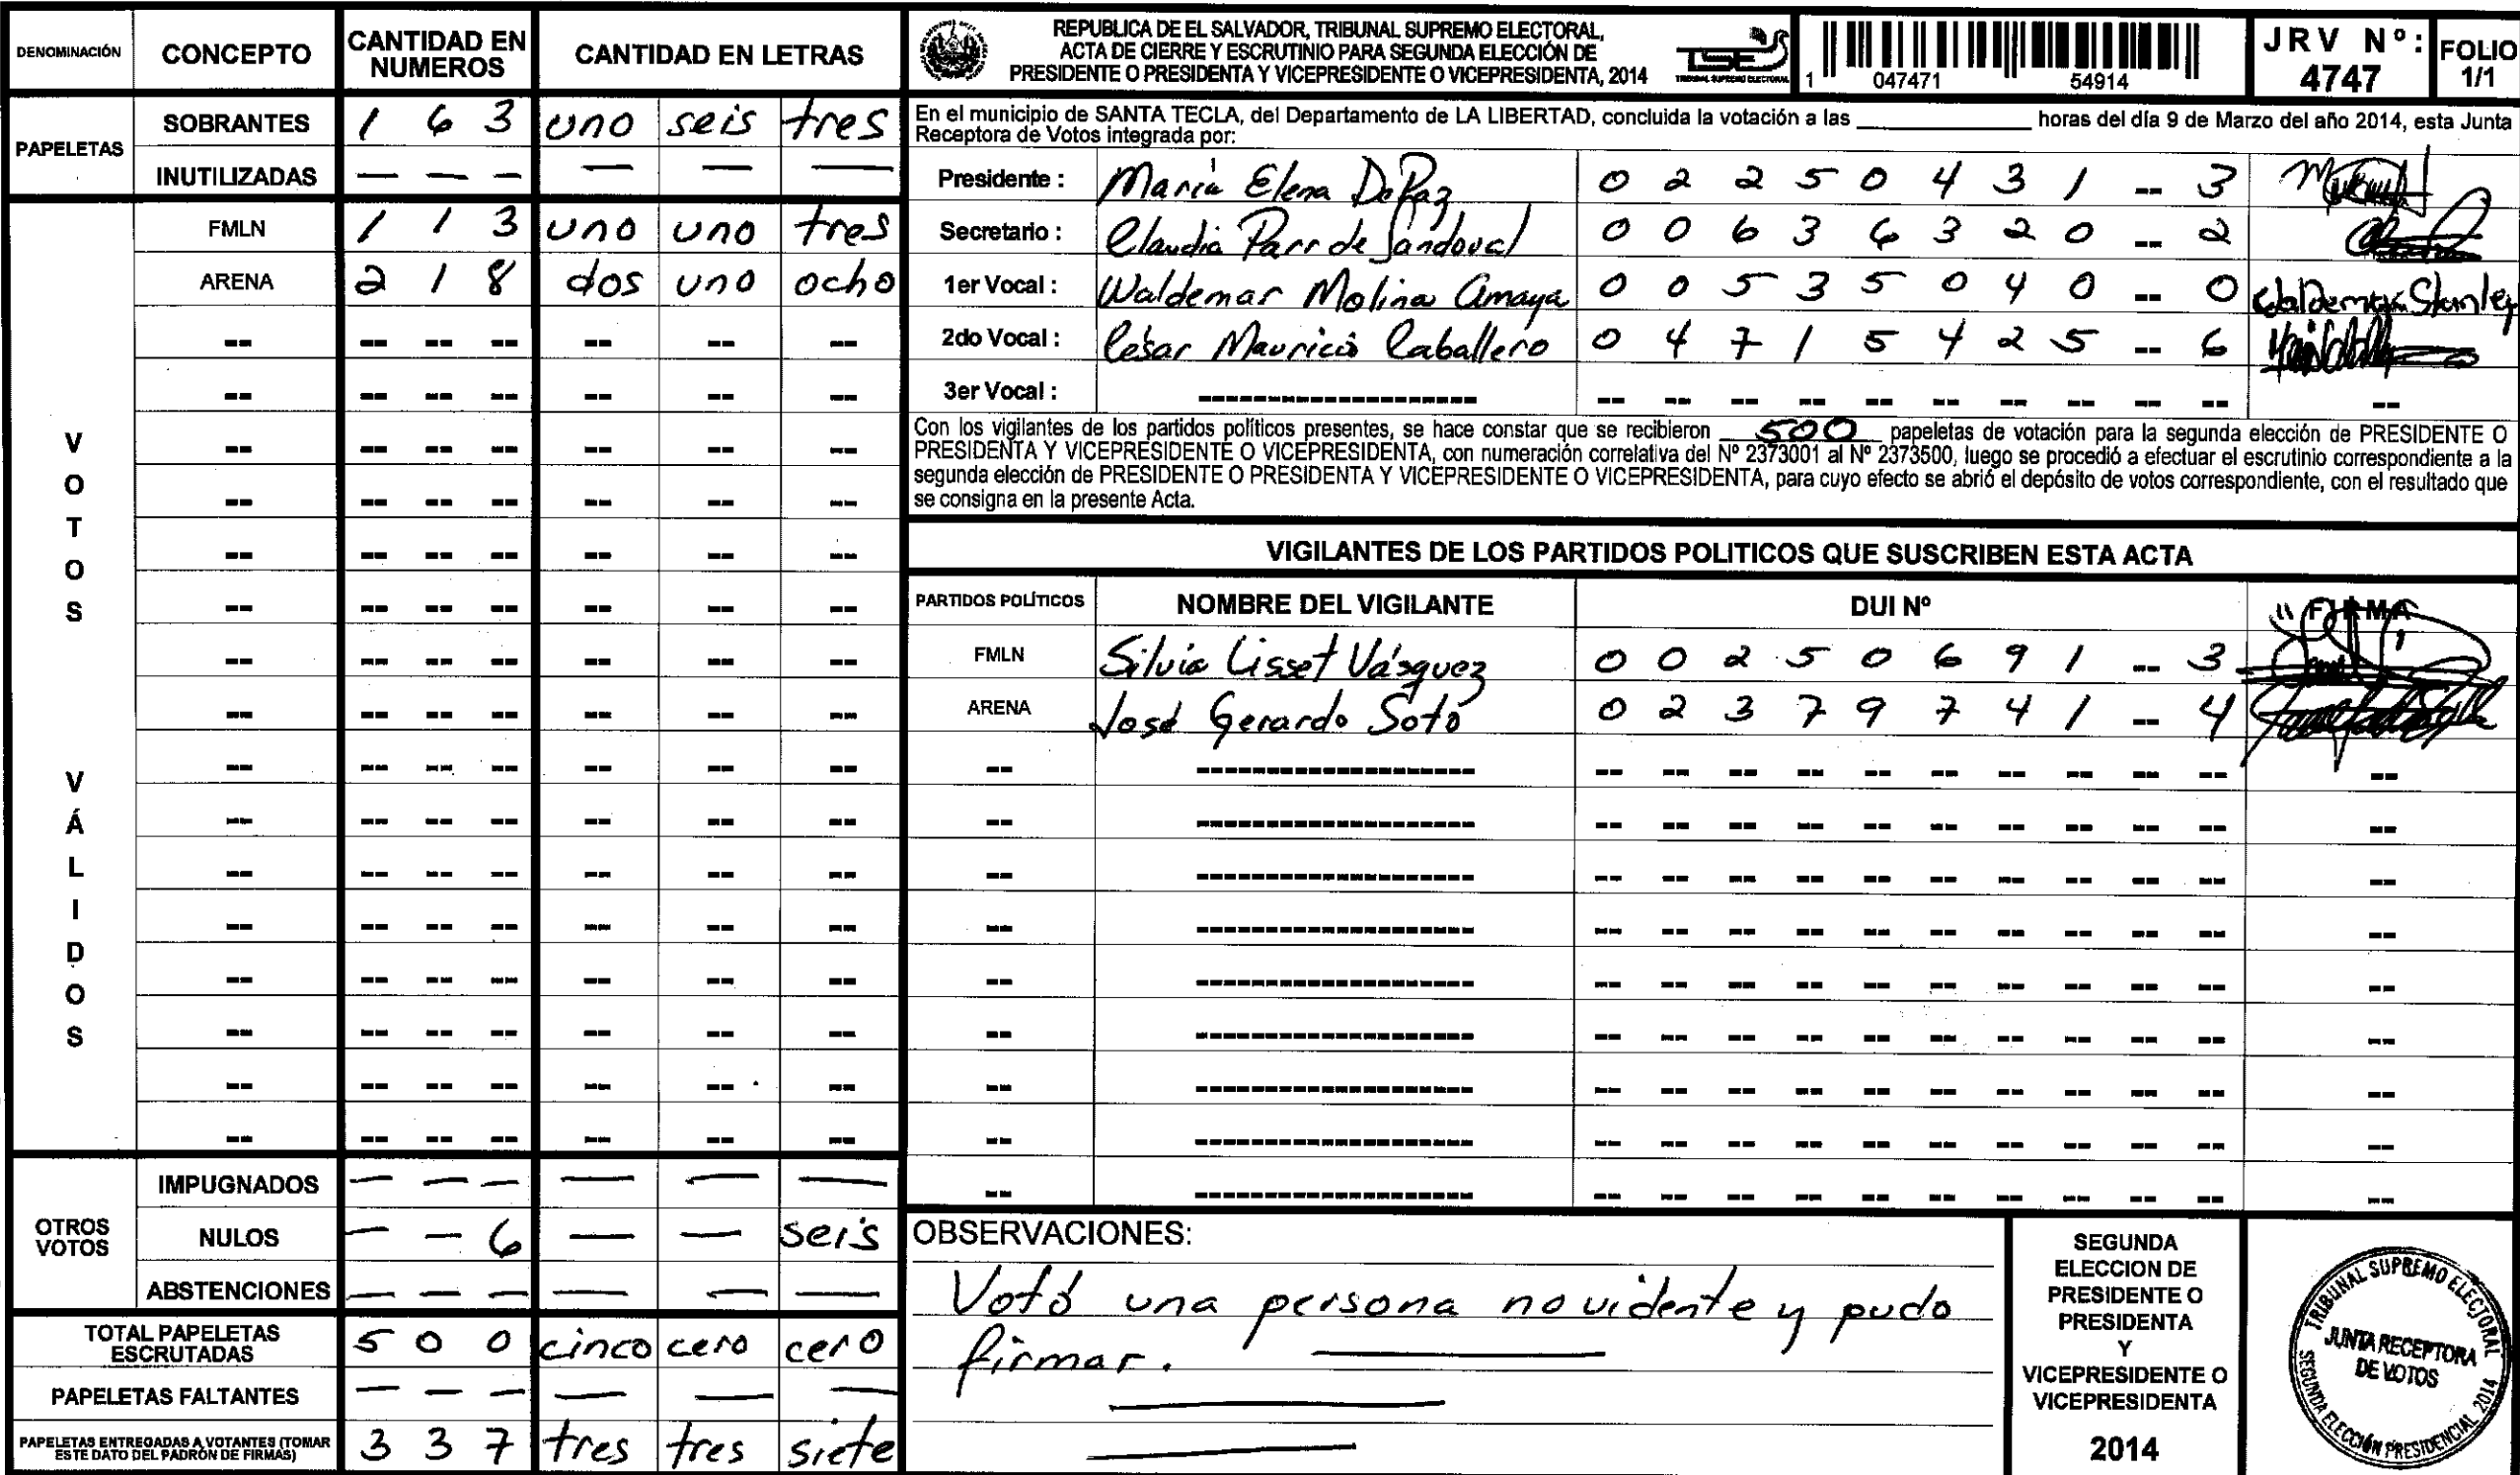 DENOMINACIÓN CONCEPTO CANTIDAD EN NUMEROS CANTIDAD EN LETRAS
PAPELETAS
SOBRANTES 1 6 3 uno seis tres
INUTILIZADAS — — — — — —
VOTOS VÁLIDOS
FMLN 1 1 3 uno uno tres
ARENA 2 1 8 dos uno ocho
-- -- -- -- -- -- --
-- -- -- -- -- -- --
-- -- -- -- -- -- --
-- -- -- -- -- -- --
-- -- -- -- -- -- --
-- -- -- -- -- -- --
-- -- -- -- -- -- --
-- -- -- -- -- -- --
-- -- -- -- -- -- --
-- -- -- -- -- -- --
-- -- -- -- -- -- --
-- -- -- -- -- -- --
-- -- -- -- -- -- --
-- -- -- -- -- -- --
-- -- -- -- -- -- --
-- -- -- -- -- -- --
OTROS VOTOS
IMPUGNADOS — — — — — —
NULOS — — 6 — — seis
ABSTENCIONES — — — — — —
TOTAL PAPELETAS ESCRUTADAS 5 0 0 cinco cero cero
PAPELETAS FALTANTES — — — — — —
PAPELETAS ENTREGADAS A VOTANTES (TOMAR ESTE DATO DEL PADRÓN DE FIRMAS) 3 3 7 tres tres siete
REPUBLICA DE EL SALVADOR, TRIBUNAL SUPREMO ELECTORAL,
ACTA DE CIERRE Y ESCRUTINIO PARA SEGUNDA ELECCIÓN DE
PRESIDENTE O PRESIDENTA Y VICEPRESIDENTE O VICEPRESIDENTA, 2014
TSE
TRIBUNAL SUPREMO ELECTORAL
1 047471 54914
JRV Nº: 4747
FOLIO 1/1
En el municipio de SANTA TECLA, del Departamento de LA LIBERTAD, concluida la votación a las ____ horas del día 9 de Marzo del año 2014, esta Junta
Receptora de Votos integrada por:
Presidente : María Elena De Paz 0 2 2 5 0 4 3 1 -- 3
Secretario : Claudia Parr de Sandoval 0 0 6 3 6 3 2 0 -- 2
1er Vocal : Waldemar Molina Amaya 0 0 5 3 5 0 4 0 -- 0 Waldemar Stanley
2do Vocal : César Mauricio Caballero 0 4 7 1 5 4 2 5 -- 6
3er Vocal : -------------------- -- -- -- -- -- -- -- -- -- -- --
Con los vigilantes de los partidos políticos presentes, se hace constar que se recibieron 500 papeletas de votación para la segunda elección de PRESIDENTE O
PRESIDENTA Y VICEPRESIDENTE O VICEPRESIDENTA, con numeración correlativa del Nº 2373001 al Nº 2373500, luego se procedió a efectuar el escrutinio correspondiente a la
segunda elección de PRESIDENTE O PRESIDENTA Y VICEPRESIDENTE O VICEPRESIDENTA, para cuyo efecto se abrió el depósito de votos correspondiente, con el resultado que
se consigna en la presente Acta.
VIGILANTES DE LOS PARTIDOS POLITICOS QUE SUSCRIBEN ESTA ACTA
PARTIDOS POLÍTICOS NOMBRE DEL VIGILANTE DUI Nº FIRMA
FMLN Silvia Lisset Vásquez 0 0 2 5 0 6 9 1 -- 3
ARENA José Gerardo Soto 0 2 3 7 9 7 4 1 -- 4
OBSERVACIONES:
Votó una persona no vidente y pudo
firmar.
SEGUNDA
ELECCION DE
PRESIDENTE O
PRESIDENTA
Y
VICEPRESIDENTE O
VICEPRESIDENTA
2014
TRIBUNAL SUPREMO ELECTORAL
JUNTA RECEPTORA
DE VOTOS
SEGUNDA ELECCIÓN PRESIDENCIAL 2014